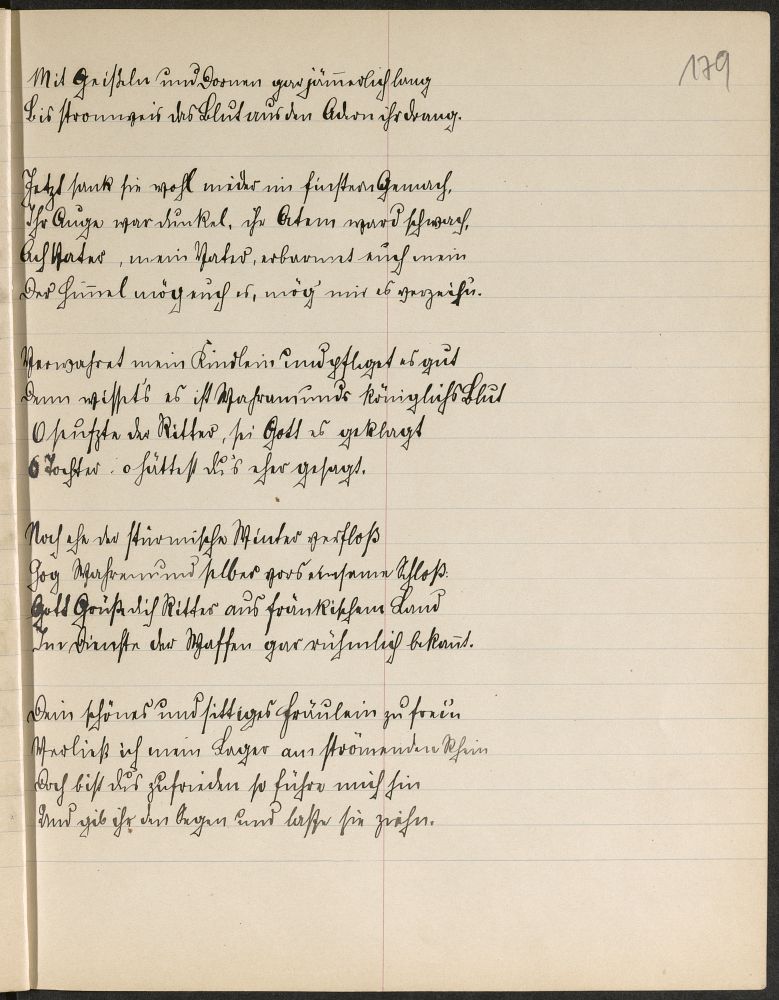 179
Mit Geißeln und Dornen gar jämerlich lang
Bis stromweis das Blut aus den Adern ihr drang.
Jetzt sank sie wohl nieder im finstern Gemach,
Ihr Auge war dunkel, ihr Atem ward schwach,
Ach Vater, mein Vater, erbarmet euch mein
Der Himel mög euch es, mög' mir es verzeihn.
Verwahret mein Kindlein und pfleget es gut
Denn wissets es ist Wahramunds königlichs Blut
O seufzte der Ritter, sei Gott es geklagt
O Tochter o hättest du's eher gesagt.
Noch ehe der stürmische Winter verfloß
Zog Wahremund selber vors einsame Schloß.
Gott Grüß dich Ritter aus fränkischem Land
Im Dienste der Waffen gar rühmlich bekant.
Dein schönes und sittiges Fräulein zu frein
Verließ ich mein Lager am strömenden Rhein
Doch bist du's zufrieden so führe mich hin
Und gib ihr den Segen und lasse sie ziehn.